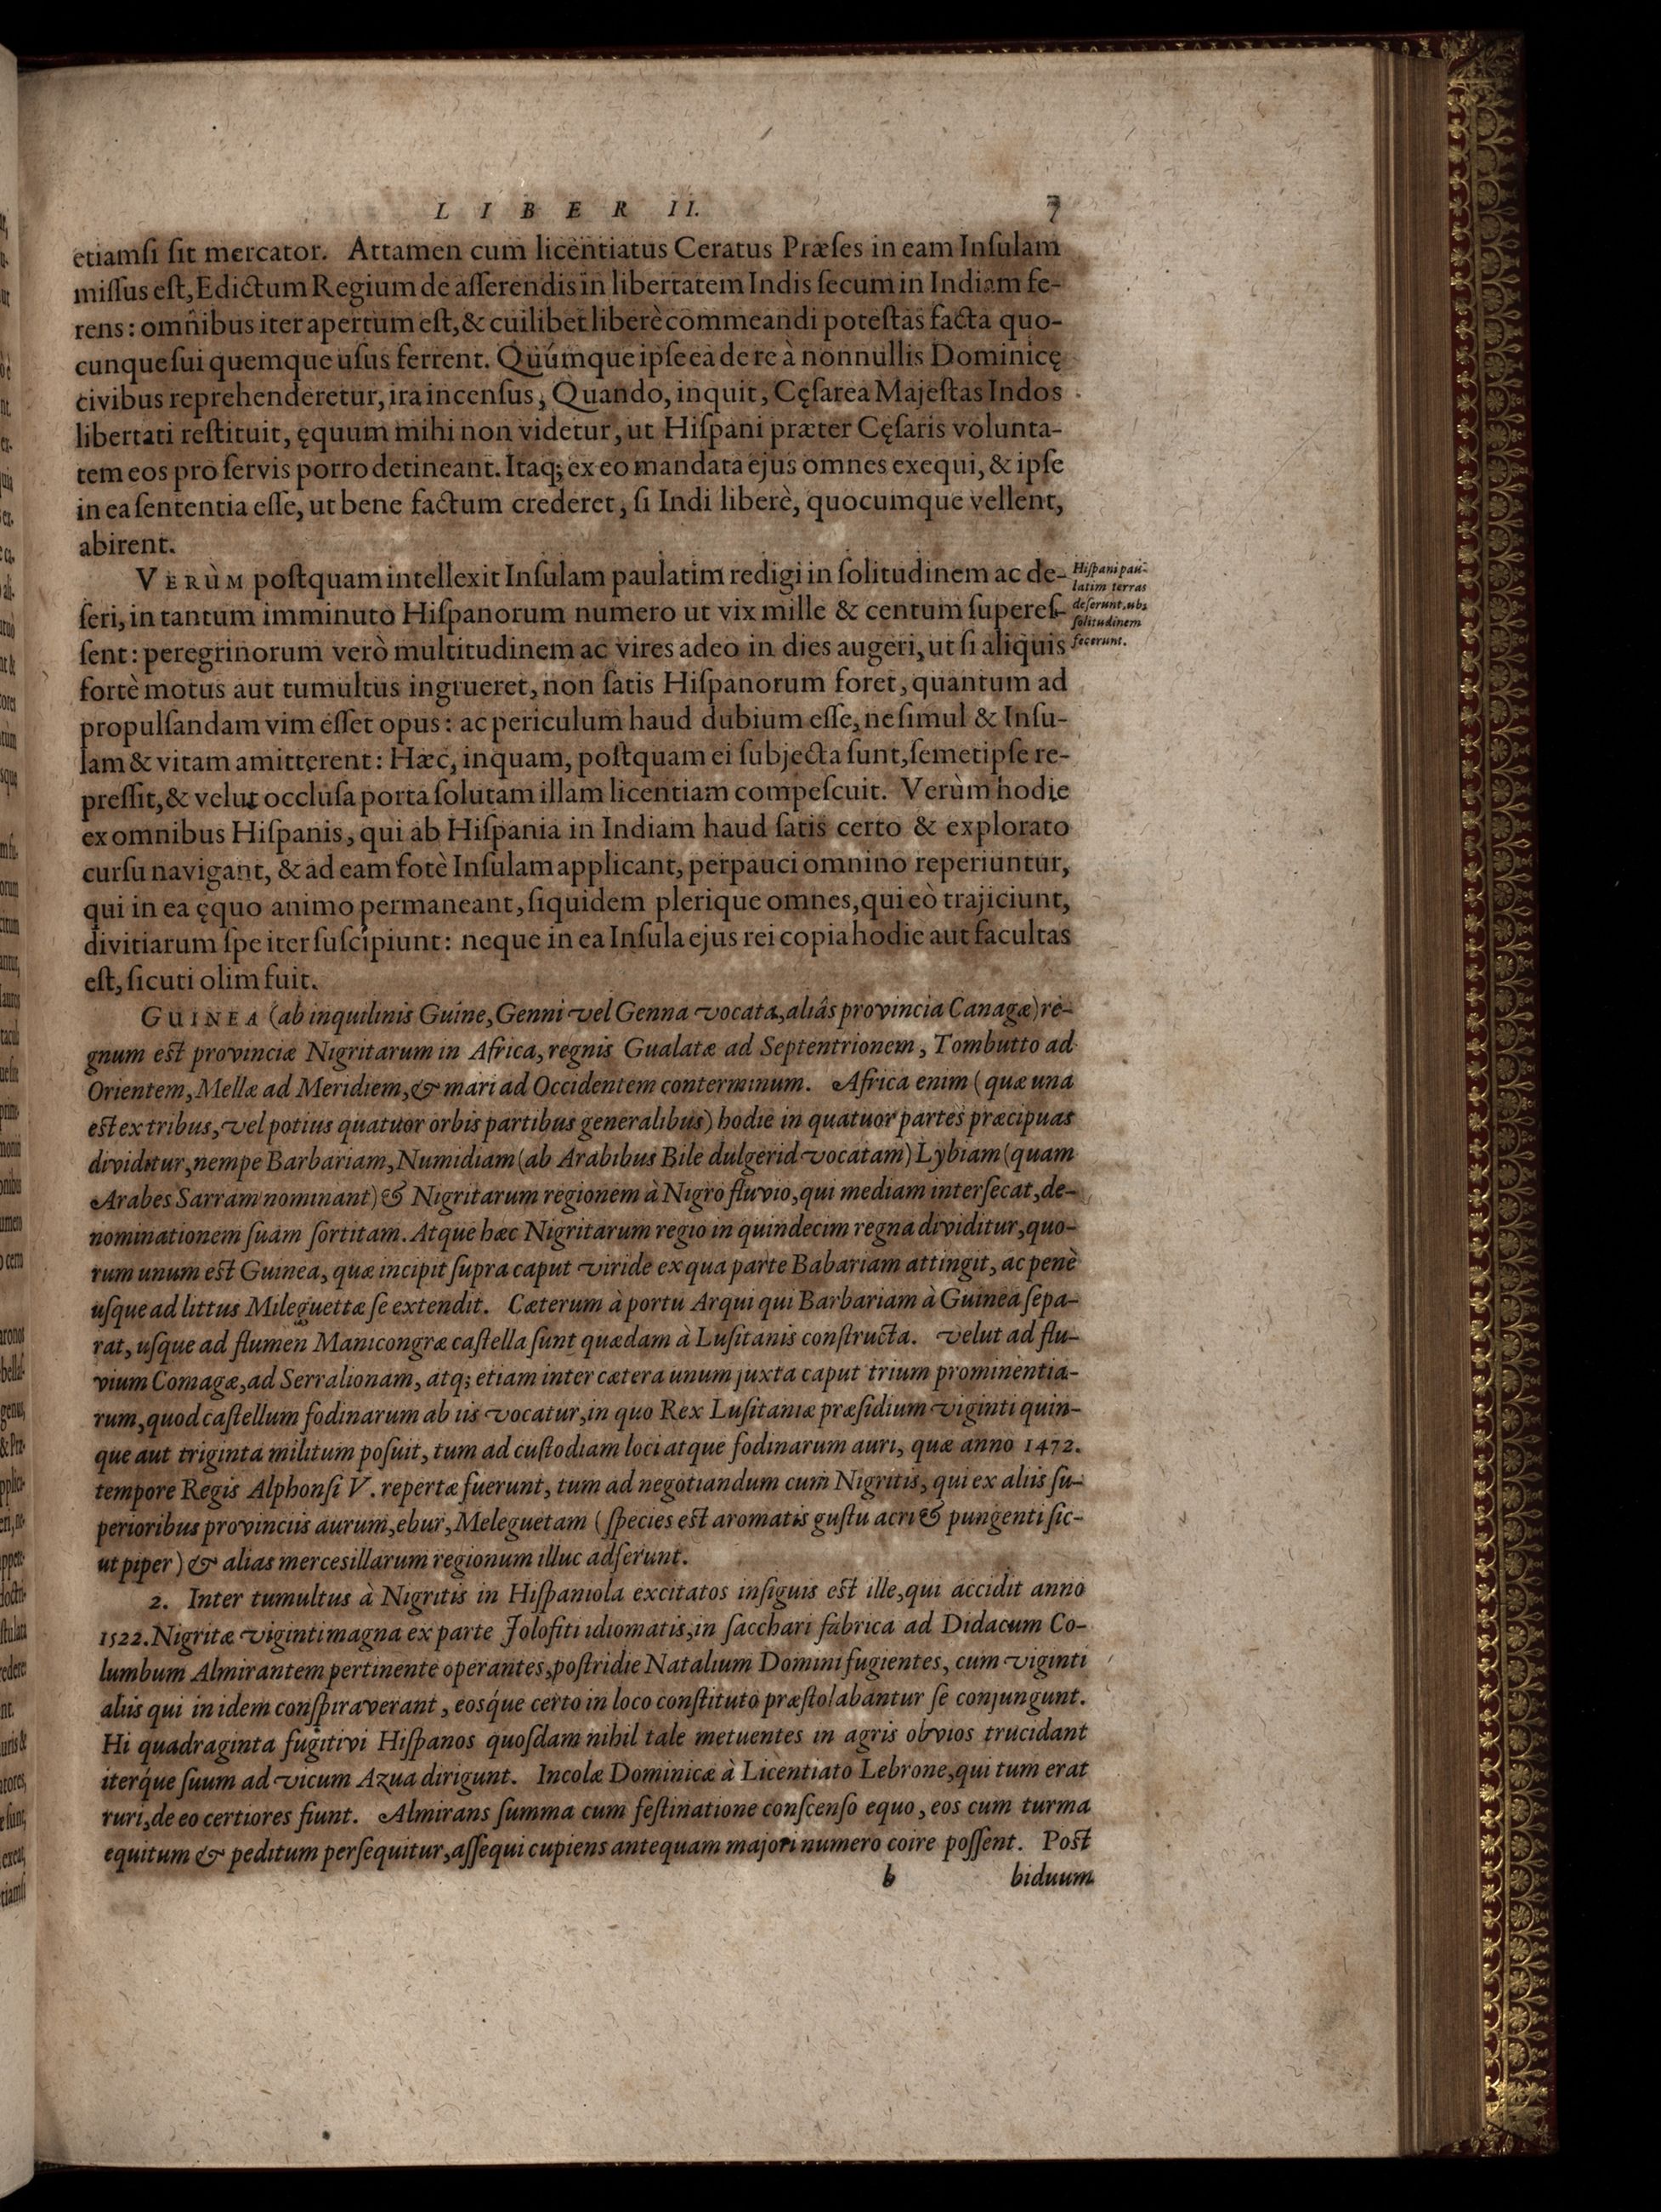 LIBER II. 7
etiamſi ſit mercator. Attamen cum licentiatus Ceratus Præſes in eam Inſulam
miſſus eſt, Edictum Regium de aſſerendis in libertatem Indis ſecum in Indiam fe-
rens: omnibus iter apertum eſt, & cuilibet liberè commeandi poteſtas facta quo-
cunque ſui quemque uſus ferrent. Quúmque ipſe ea de re à nonnullis Dominicę
civibus reprehenderetur, ira incenſus, Quando, inquit, Cęſarea Majeſtas Indos
libertati reſtituit, ęquum mihi non videtur, ut Hiſpani præter Cęſaris volunta-
tem eos pro ſervis porro detineant. Itaq; ex eo mandata ejus omnes exequi, & ipſe
in ea ſententia eſſe, ut bene factum crederet, ſi Indi liberè, quocumque vellent,
abirent.
VERÙM poſtquam intellexit Inſulam paulatim redigi in ſolitudinem ac de-
ſeri, in tantum imminuto Hiſpanorum numero ut vix mille & centum ſupereſ-
ſent: peregrinorum verò multitudinem ac vires adeo in dies augeri, ut ſi aliquis
fortè motus aut tumultus ingrueret, non ſatis Hiſpanorum foret, quantum ad
propulſandam vim eſſet opus: ac periculum haud dubium eſſe, ne ſimul & Inſu-
lam & vitam amitterent: Hæc, inquam, poſtquam ei ſubjecta ſunt, ſemetipſe re-
preſſit, & velut occluſa porta ſolutam illam licentiam compeſcuit. Verùm hodie
ex omnibus Hiſpanis, qui ab Hiſpania in Indiam haud ſatis certo & explorato
curſu navigant, & ad eam fotè Inſulam applicant, perpauci omnino reperiuntur,
qui in ea ęquo animo permaneant, ſiquidem plerique omnes, qui eò trajiciunt,
divitiarum ſpe iter ſuſcipiunt: neque in ea Inſula ejus rei copia hodie aut facultas
eſt, ſicuti olim fuit.
Hiſpani pau-
latim terras
deſerunt, ubi
ſolitudinem
fecerunt.
GUINEA (ab inquilinis Guine, Genni vel Genna vocata, aliâs provincia Canagæ) re-
gnum eſt provinciæ Nigritarum in Africa, regnis Gualatæ ad Septentrionem, Tombutto ad
Orientem, Mellæ ad Meridiem, & mari ad Occidentem conterminum. Africa enim (quæ una
eſt ex tribus, vel potius quatuor orbis partibus generalibus) hodie in quatuor partes præcipuas
dividitur, nempe Barbariam, Numidiam (ab Arabibus Bile dulgerid vocatam) Lybiam (quam
Arabes Sarram nominant) & Nigritarum regionem à Nigro fluvio, qui mediam interſecat, de-
nominationem ſuam ſortitam. Atque hæc Nigritarum regio in quindecim regna dividitur, quo-
rum unum eſt Guinea, quæ incipit ſupra caput viride ex qua parte Babariam attingit, ac penè
uſque ad littus Mileguettæ ſe extendit. Cæterum à portu Arqui qui Barbariam à Guinea ſepa-
rat, uſque ad flumen Manicongræ caſtella ſunt quædam à Luſitanis conſtructa. velut ad flu-
vium Comagæ, ad Serralionam, atq; etiam inter cætera unum juxta caput trium prominentia-
rum, quod caſtellum fodinarum ab iis vocatur, in quo Rex Luſitaniæ præſidium viginti quin-
que aut triginta militum poſuit, tum ad cuſtodiam loci atque fodinarum auri, quæ anno 1472.
tempore Regis Alphonſi V. repertæ fuerunt, tum ad negotiandum cum Nigritis, qui ex aliis ſu-
perioribus provinciis aurum, ebur, Meleguetam (ſpecies eſt aromatis guſtu acri & pungenti ſic-
ut piper) & alias merces illarum regionum illuc adferunt.
2. Inter tumultus à Nigritis in Hiſpaniola excitatos inſiguis eſt ille, qui accidit anno
1522. Nigritæ viginti magna ex parte Jolofiti idiomatis, in ſacchari fabrica ad Didacum Co-
lumbum Almirantem pertinente operantes, poſtridie Natalium Domini fugientes, cum viginti
aliis qui in idem conſpiraverant, eosq́ue certo in loco conſtituto præſtolabantur ſe conjungunt.
Hi quadraginta fugitivi Hiſpanos quoſdam nihil tale metuentes in agris obvios trucidant
iterq́ue ſuum ad vicum Azua dirigunt. Incolæ Dominicæ à Licentiato Lebrone, qui tum erat
ruri, de eo certiores fiunt. Almirans ſumma cum feſtinatione conſcenſo equo, eos cum turma
equitum & peditum perſequitur, aſſequi cupiens antequam majori numero coire poſſent. Poſt
b biduum